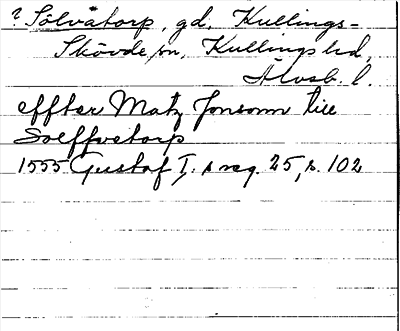 ? Sölvatorp, gd, Kullings-
Skövde sn, Kullings hd,
Älvsb. l.
effter Matz Jonsonn till
Soeffvetorp
1555 Gustaf I. s reg. 25, s. 102